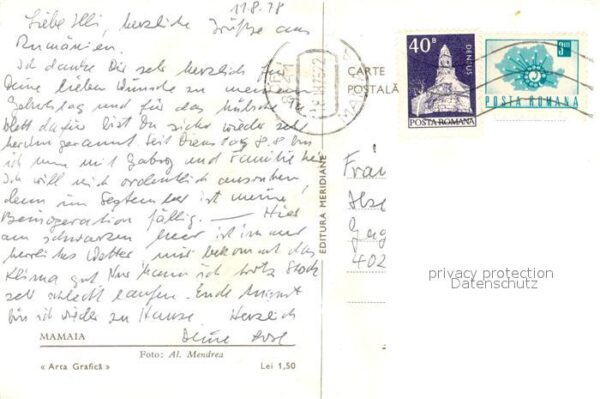 11.8.78
Liebe Illi, herzliche Grüße aus
Rumänien.
Ich danke Dir sehr herzlich für
Deine lieben Wünsche zu meinem
Geburtstag und für das hübsche
Blatt dafür bist Du sicher wieder sehr
herumgerannt. Seit Dienstag 8.8 bin
ich nun mit und Familie hier
Ich will mich ordentlich ausruhen,
denn im September ist meine
Beinoperation fällig. — Hier
am schwarzen Meer ist immer
herrliches Wetter mir bekommt das
Klima gut Nur kann ich trotz Stock
sehr schlecht laufen. Ende August
bin ich wieder zu Hause Herzlich
Deine
MAMAIA
Foto: Al. Mendrea
« Arta Grafică »
Lei 1,50
EDITURA MERIDIANE
CARTE
POSTALĂ
40B
DENSUS
POSTA ROMANA
3 LEI
POSTA ROMANA
Frau
Gag
402
privacy protection
Datenschutz